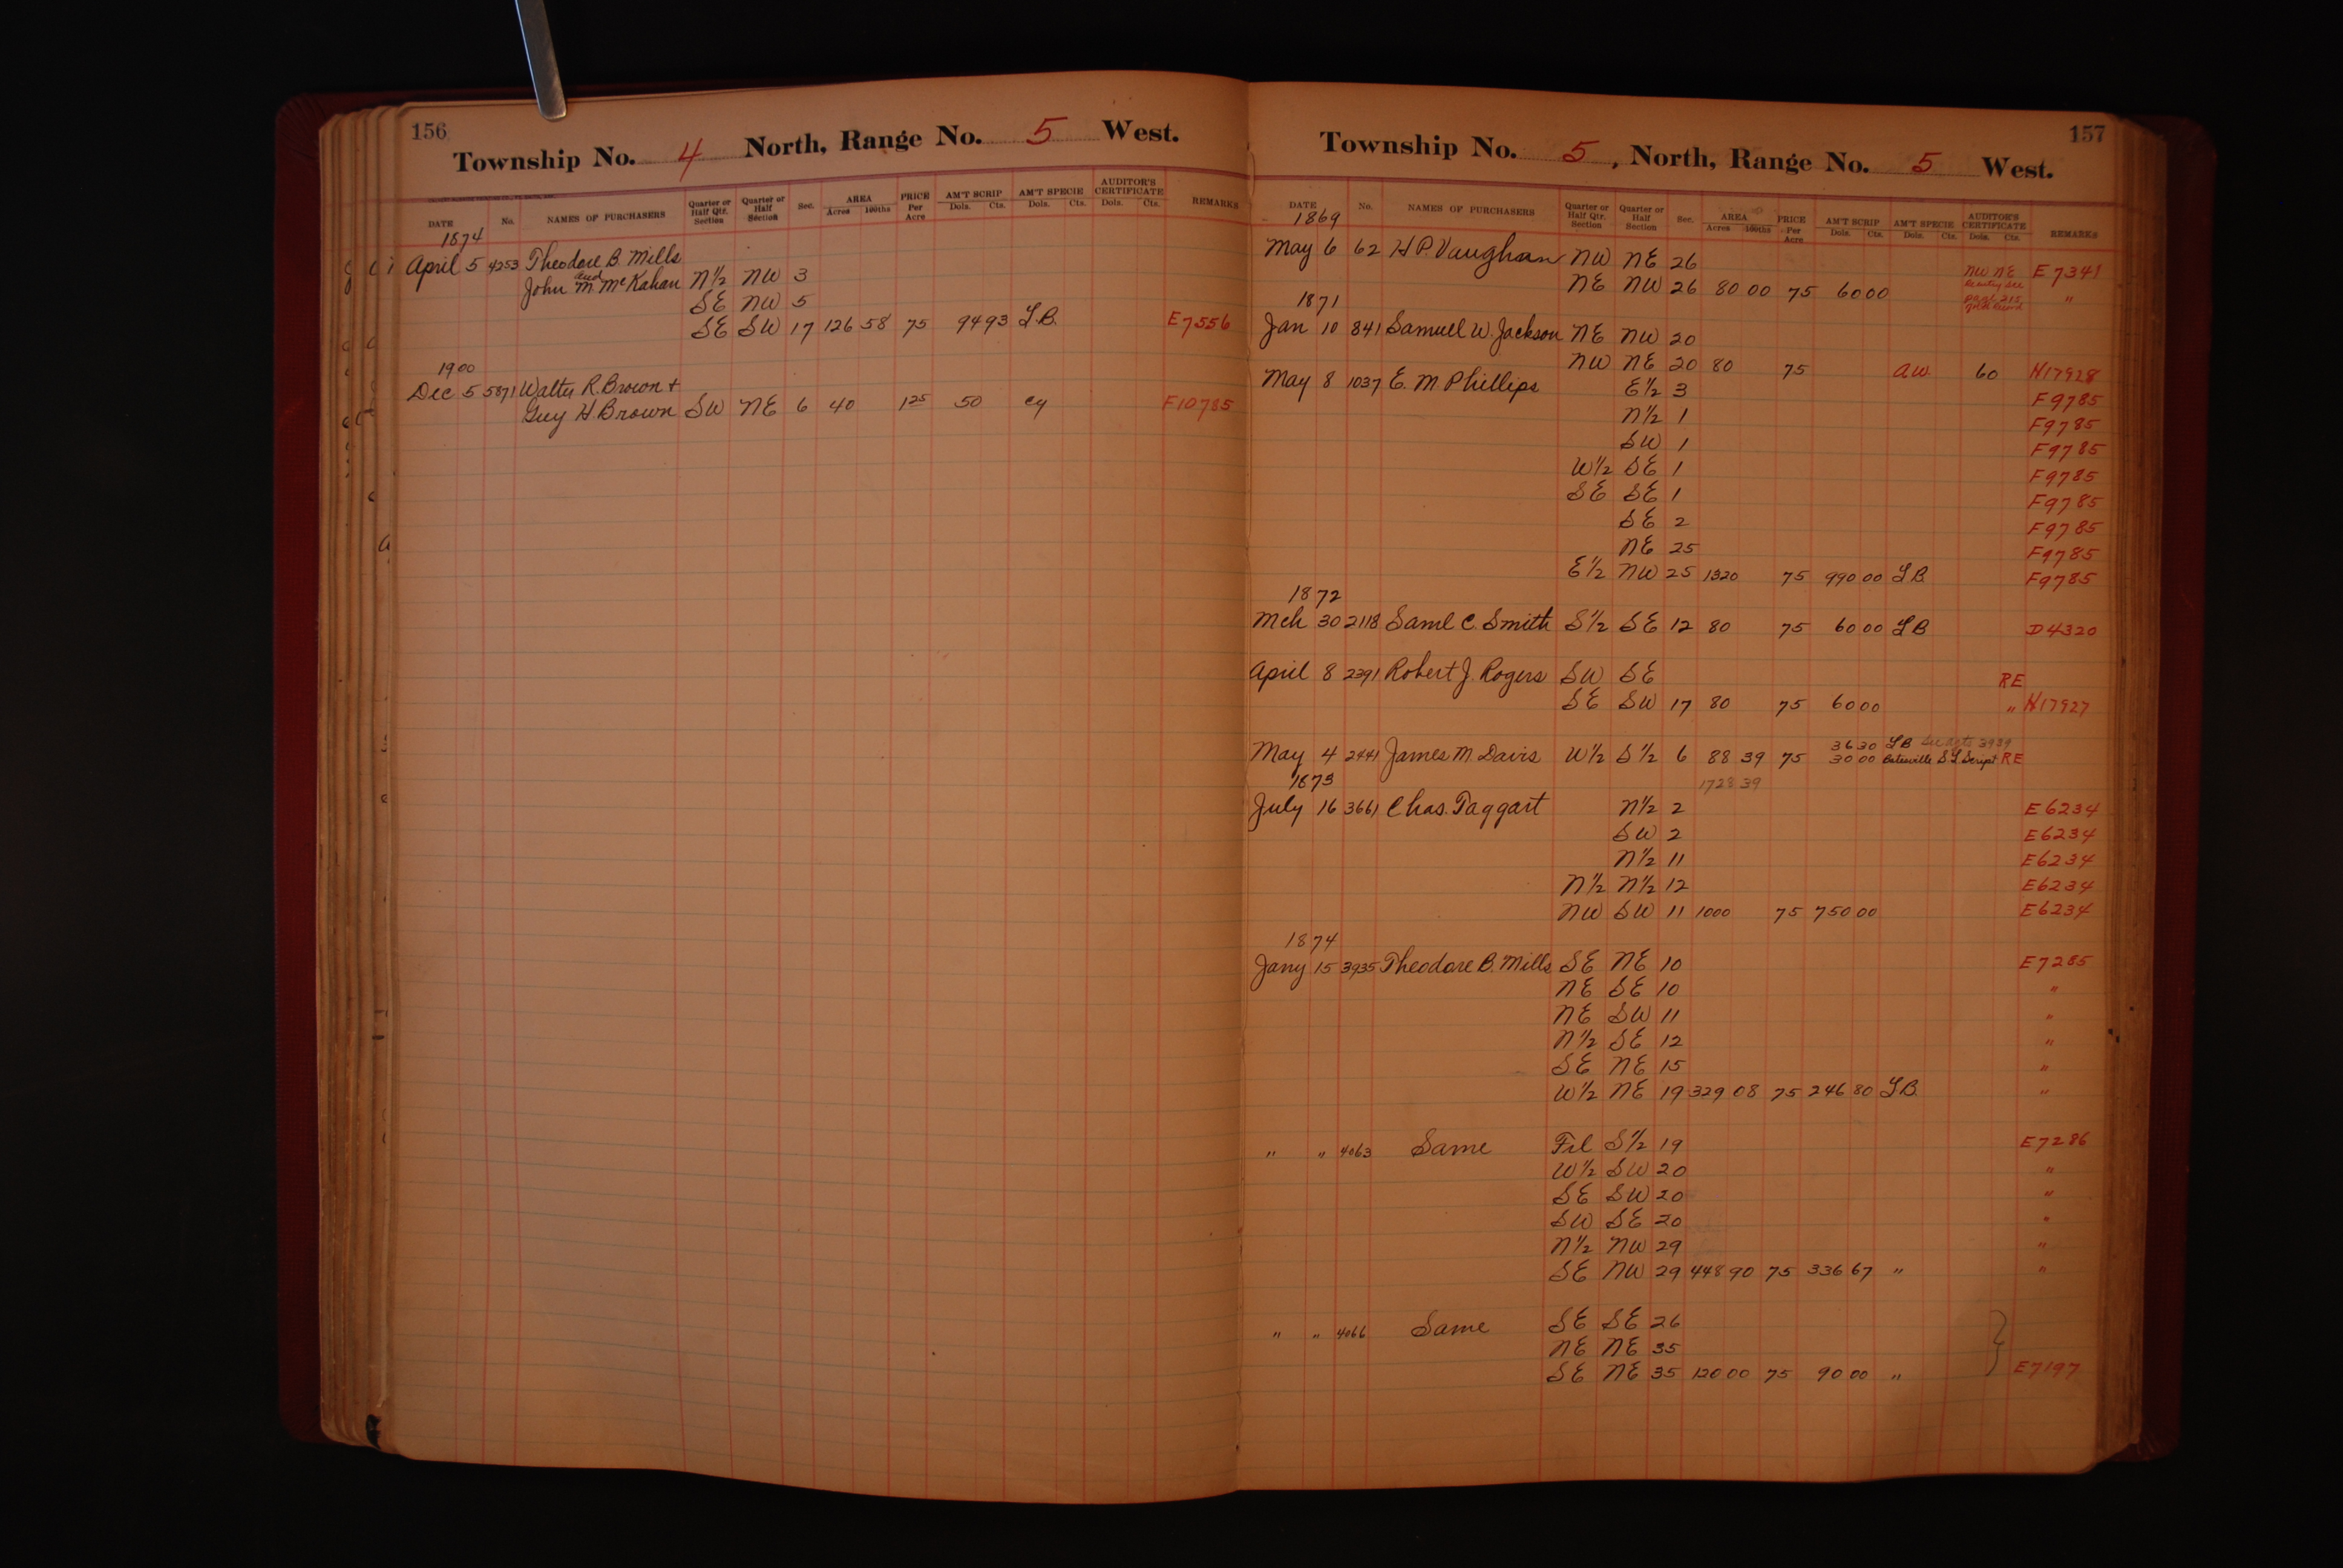 156
Township No. 4 North, Range No. 5 West.
DATE No. NAMES OF PURCHASERS Quarter or Half Qtr. Section Quarter or Half Section Sec. AREA Acres 100ths PRICE Per Acre AM'T SCRIP Dols. Cts. AM'T SPECIE Dols. Cts. AUDITOR'S CERTIFICATE Dols. Cts. REMARKS
1874
April 5 4253 Theodore B. Mills
and
John M. McKahan N½ NW 3
SE NW 5
SE SW 17 126 58 75 94 93 L.B. E7556
1900
Dec 5 5871 Walter R. Brown +
Guy H Brown SW NE 6 40 1 25 50 cy F10785
157
Township No. 5, North, Range No. 5 West.
DATE No. NAMES OF PURCHASERS Quarter or Half Qtr. Section Quarter or Half Section Sec. AREA Acres 100ths PRICE Per Acre AM'T SCRIP Dols. Cts. AM'T SPECIE Dols. Cts. AUDITOR'S CERTIFICATE Dols. Cts. REMARKS
1869
May 6 62 H P. Vaughan NW NE 26 NW NE E7341
NE NW 26 80 00 75 60 00 "
1871
Jan 10 841 Samuel W. Jackson NE NW 20
NW NE 20 80 75 aw. 60 H17928
May 8 1037 E. M Phillips E½ 3 F9785
N½ 1 F9785
SW 1 F9785
W½ SE 1 F9785
SE SE 1 F9785
SE 2 F9785
NE 25 F9785
E½ NW 25 1320 75 990 00 L.B. F9785
1872
Mch 30 2118 Saml C. Smith S½ SE 12 80 75 60 00 LB D4320
April 8 2391 Robert J. Rogers SW SE RE
SE SW 17 80 75 60 00 " H17927
36 30 LB
May 4 2441 James M. Davis W½ S½ 6 88 39 75 30 00 Batesville S L Script RE
1873 1728 39
July 16 3661 Chas. Taggart N½ 2 E6234
SW 2 E6234
N½ 11 E6234
N½ N½ 12 E6234
NW SW 11 1000 75 750 00 E6234
1874
Jany 15 3935 Theodore B. Mills SE NE 10 E7285
NE SE 10 "
NE SW 11 "
N½ SE 12 "
SE NE 15 "
W½ NE 19 329 08 75 246 80 L.B. "
" " 4063 Same Frl S½ 19 E7286
W½ SW 20 "
SE SW 20 "
SW SE 20 "
N½ NW 29 "
SE NW 29 448 90 75 336 67 " "
" " 4066 Same SE SE 26
NE NE 35
SE NE 35 120 00 75 90 00 " E7197